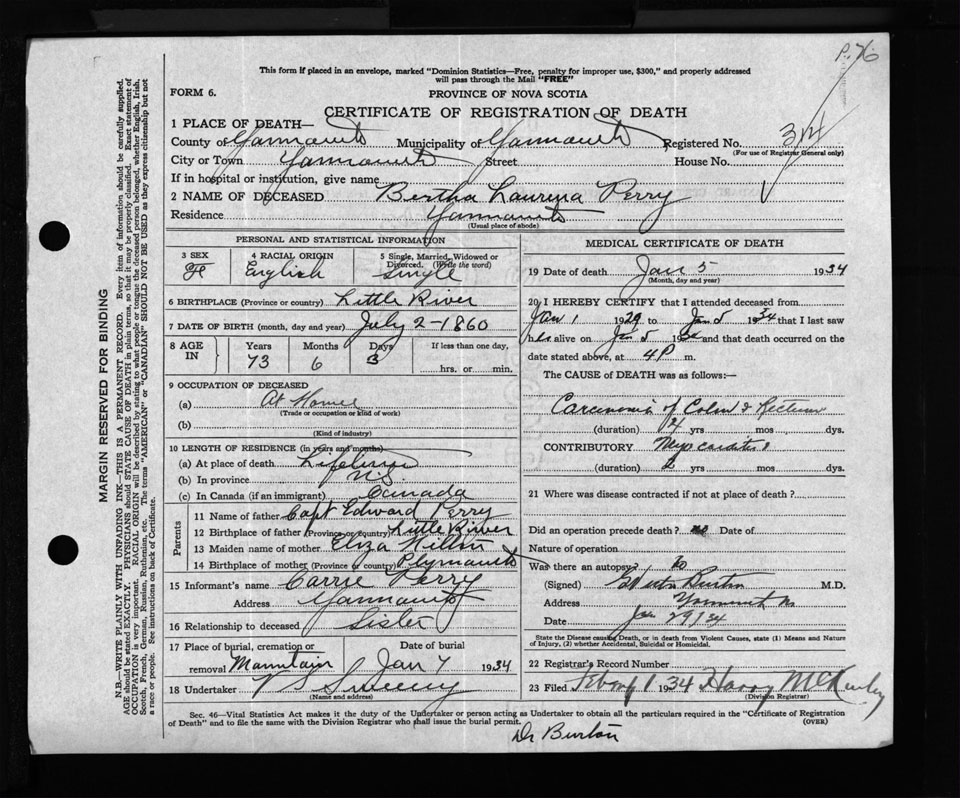 P. 76
This form if placed in an envelope, marked "Dominion Statistics—Free, penalty for improper use, $300," and properly addressed
will pass through the Mail "FREE"
FORM 6.
PROVINCE OF NOVA SCOTIA
CERTIFICATE OF REGISTRATION OF DEATH
1 PLACE OF DEATH—
County of Yarmouth Municipality of Yarmouth Registered No. 34
(For use of Registrar General only)
City or Town Yarmouth Street House No.
If in hospital or institution, give name
2 NAME OF DECEASED Bertha Laurina Perry
Residence Yarmouth
(Usual place of abode)
PERSONAL AND STATISTICAL INFORMATION
3 SEX 4 RACIAL ORIGIN 5 Single, Married, Widowed or
Divorced. (Write the word)
F English Single
6 BIRTHPLACE (Province or country) Little River
7 DATE OF BIRTH (month, day and year) July 2-1860
8 AGE IN Years Months Days If less than one day,
73 6 3 hrs. or min.
9 OCCUPATION OF DECEASED
(a) At Home
(Trade or occupation or kind of work)
(b)
(Kind of industry)
10 LENGTH OF RESIDENCE (in years and months)
(a) At place of death Lifetime
(b) In province N.S.
(c) In Canada (if an immigrant) Canada
Parents
11 Name of father Capt Edward Perry
12 Birthplace of father (Province or country) Little River
13 Maiden name of mother Eliza
14 Birthplace of mother (Province or country) Plymouth
15 Informant's name Carrie Perry
Address Yarmouth
16 Relationship to deceased Sister
17 Place of burial, cremation or Date of burial
removal Mountain Jan 7 1934
18 Undertaker V S Sweeny
(Name and address)
MEDICAL CERTIFICATE OF DEATH
19 Date of death Jan 5 1934
(Month, day and year)
20 I HEREBY CERTIFY that I attended deceased from
Jan 1 1929 to Jan 5 1934 that I last saw
her alive on Jan 5 19 and that death occurred on the
date stated above, at 4 P m.
The CAUSE of DEATH was as follows:—
Carcinomia of Colon & Rectum
(duration) yrs mos dys.
CONTRIBUTORY Myocarditis
(duration) 2 yrs mos dys.
21 Where was disease contracted if not at place of death?
Did an operation precede death? no Date of.
Nature of operation
Was there an autopsy? no
(Signed) Burton M.D.
Address Yarmouth
Date Jan 29/34
State the Disease causing Death, or in death from Violent Causes, state (1) Means and Nature
of Injury, (2) whether Accidental, Suicidal or Homicidal.
22 Registrar's Record Number
23 Filed Feby 1 1934 Harry
(Division Registrar)
Sec. 46—Vital Statistics Act makes it the duty of the Undertaker or person acting as Undertaker to obtain all the particulars required in the "Certificate of Registration
of Death" and to file the same with the Division Registrar who shall issue the burial permit. (OVER)
Dr Burton
MARGIN RESERVED FOR BINDING
N.B.—WRITE PLAINLY WITH UNFADING INK—THIS IS A PERMANENT RECORD. Every item of information should be carefully supplied.
AGE should be stated EXACTLY. PHYSICIANS should STATE CAUSE OF DEATH in plain terms, so that it may be properly classified. Exact statement of
OCCUPATION is very important. RACIAL ORIGIN will be described by stating to what people or tongue the deceased person belonged, whether English, Irish,
Scotch, French, German, Russian, Ruthenian, etc. The terms "AMERICAN" or "CANADIAN" SHOULD NOT BE USED as they express citizenship but not
a race or people. See instructions on back of Certificate.